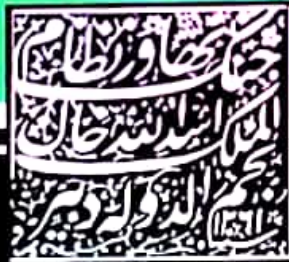 نجم الدوله دبیر
الملک اسد الله خان
بهادر نظام جنگ